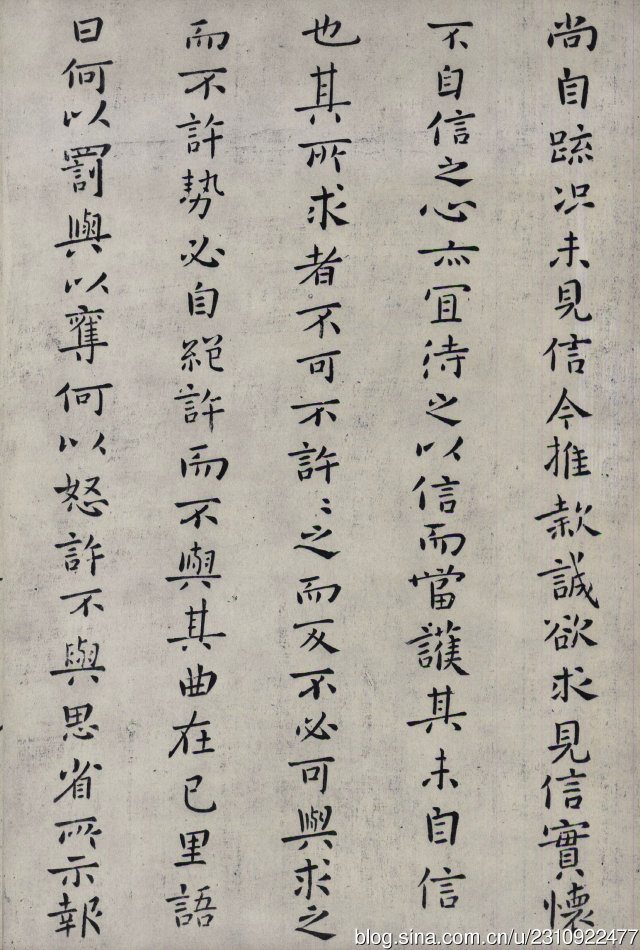 尚自疏況未見信今推款誠欲求見信實懷
不自信之心亦宜待之以信而當護其未自信
也其所求者不可不許〻之而反不必可與求之
而不許勢必自絕許而不與其曲在己里語
曰何以罰與以奪何以怒許不與思省所示報
blog.sina.com.cn/u/2310922477